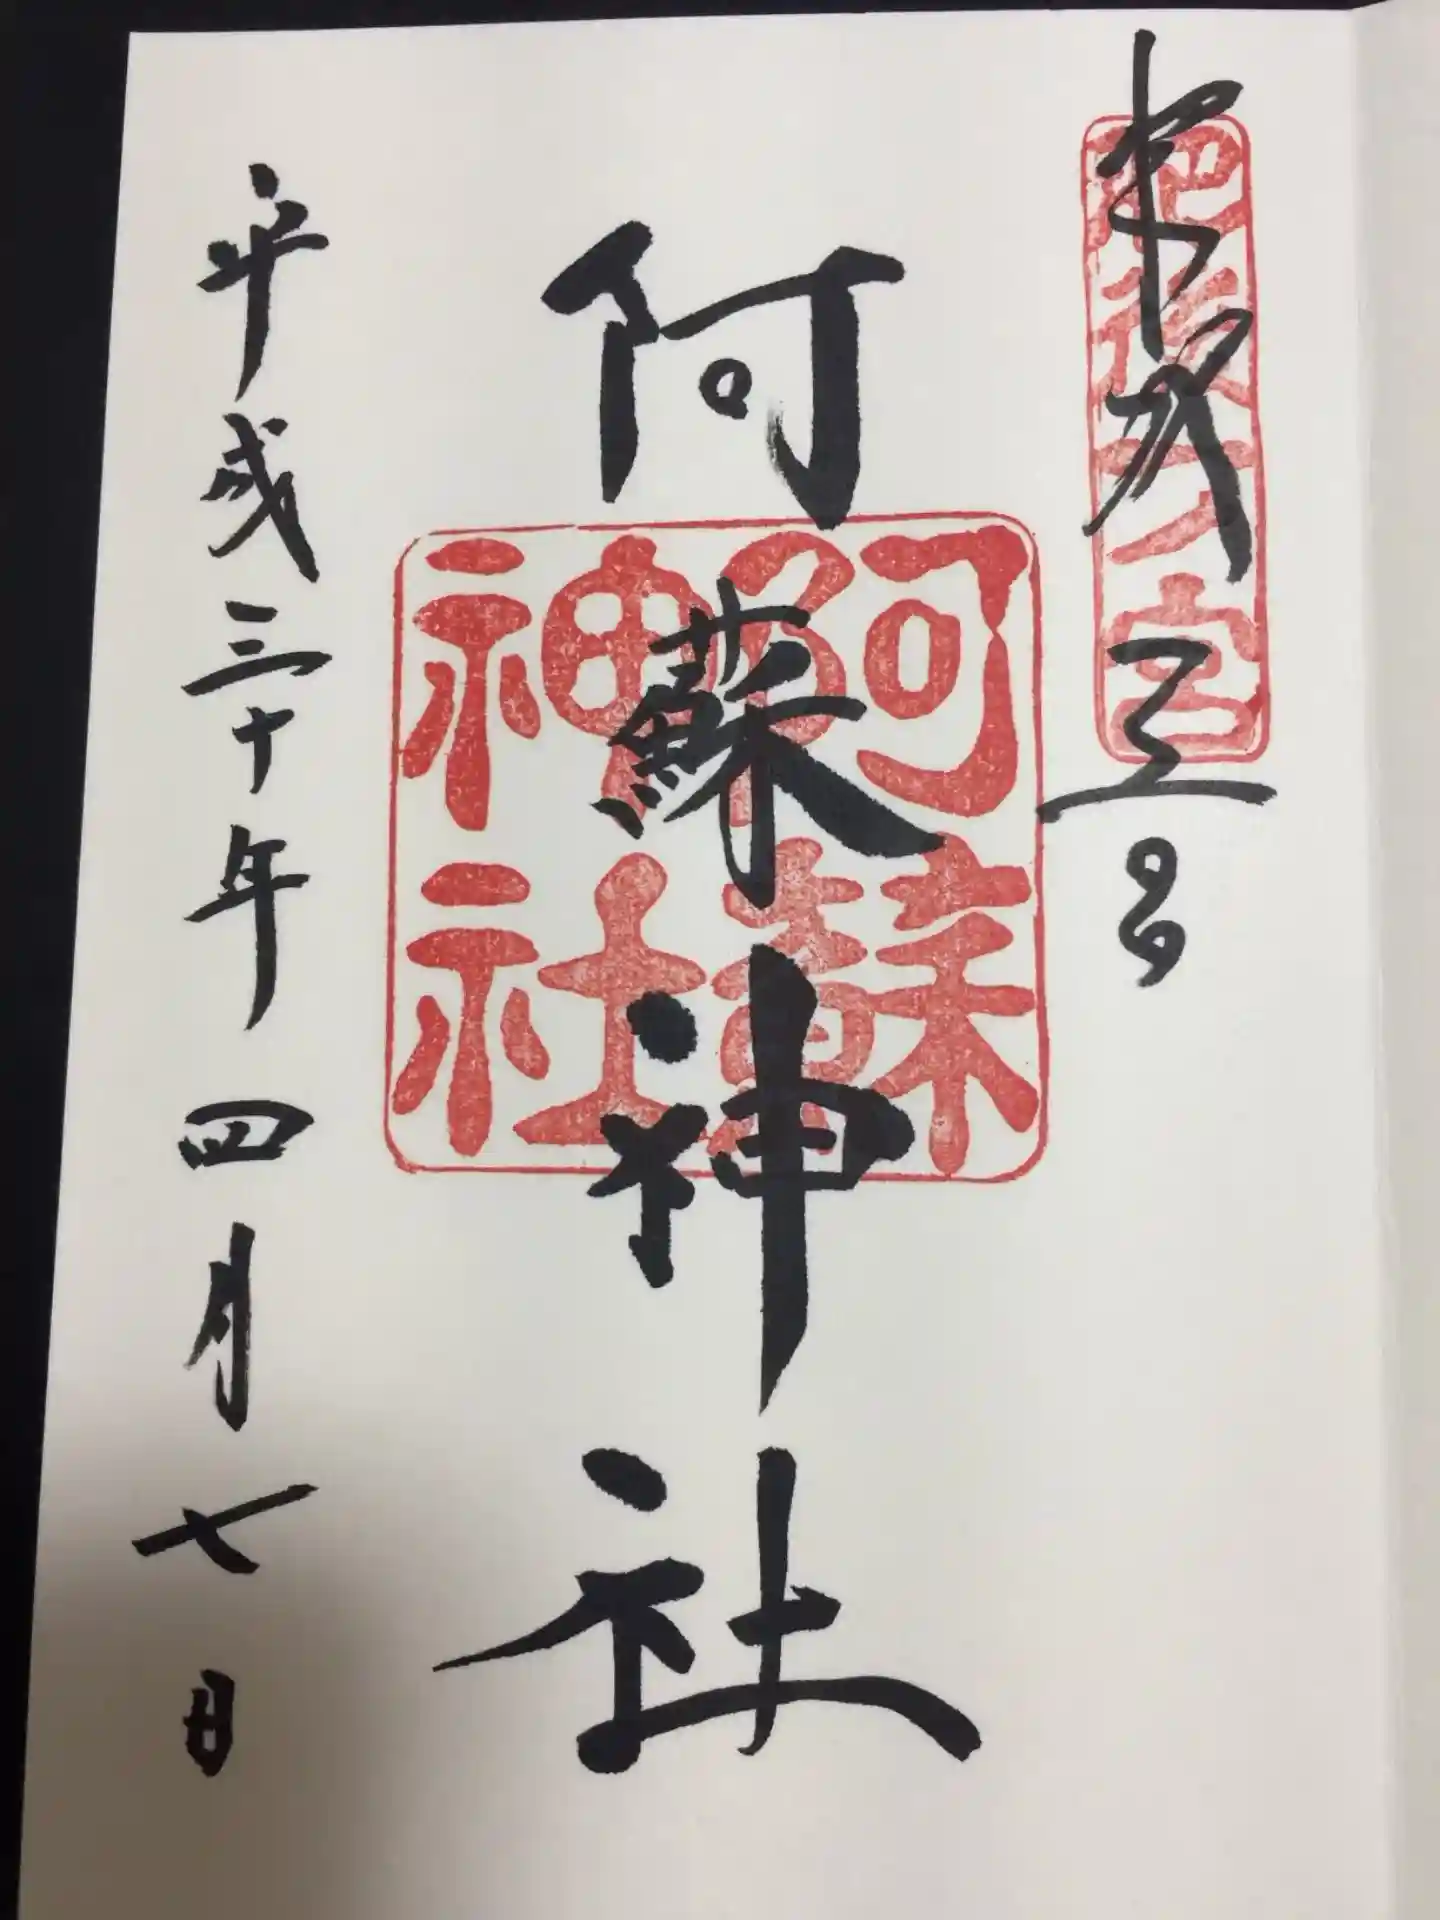 肥後一ノ宮
阿蘇神社
阿蘇神社
平成三十年四月七日